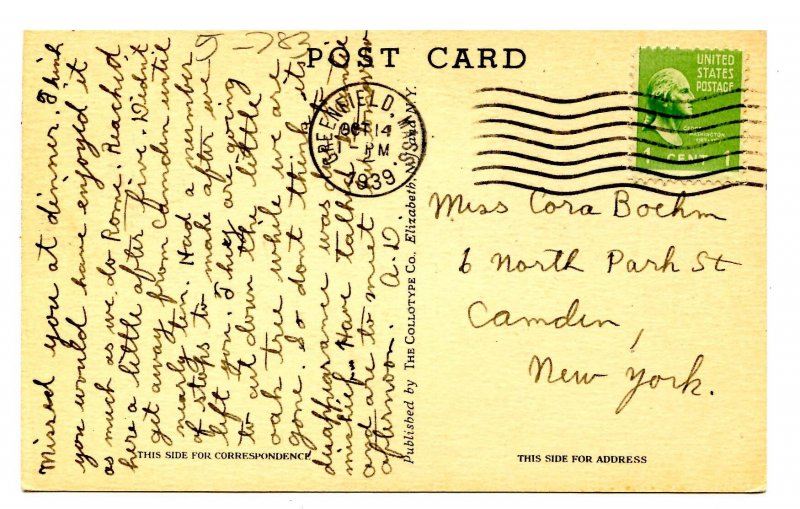 J-782
POST CARD
UNITED
STATES
POSTAGE
1 CENT 1
GREENFIELD, MASS
OCT 14
PM
1939
Missed you at dinner. Think
you would have enjoyed it
as much as we do Rome. Reached
here a little after five. Didn't
get away from Camden until
nearly ten. Had a number
of stops to make after we
left you. They are going
to cut down the little
oak tree while we are
gone. So dont think its
disappearance was due to
mischief. Have talked
and are to meet
afternoon. A.D.
Published by THE COLLOTYPE CO. Elizabeth, N.J. and N.Y.
Miss Cora Boehm
6 North Park St
Camden,
New York.
THIS SIDE FOR CORRESPONDENCE
THIS SIDE FOR ADDRESS